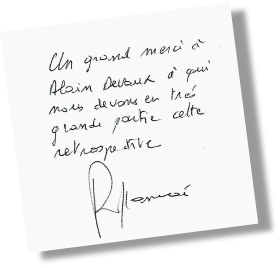 Un grand merci à
Alain Devaux à qui
nous devons en très
grande partie cette
retrospective